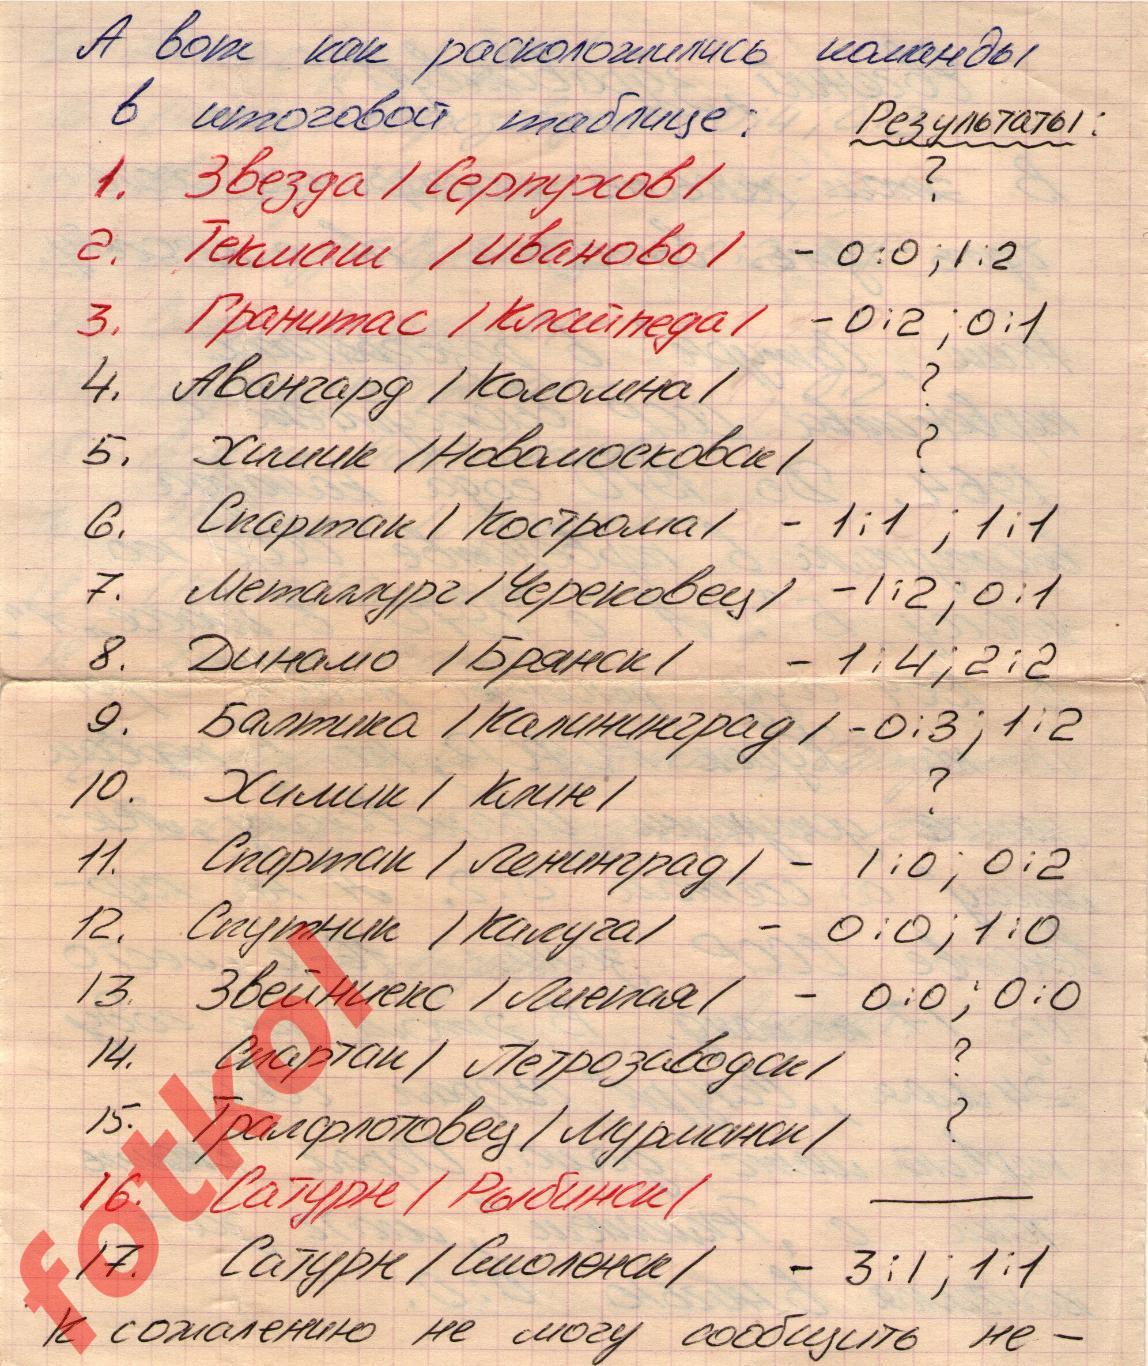 А вот как расположились команды
в итоговой таблице: Результаты:
1. Звезда /Серпухов/ ?
2. Текмаш /Иваново/ - 0:0; 1:2
3. Гранитас /Клайпеда/ - 0:2; 0:1
4. Авангард /Коломна/ ?
5. Химик /Новомосковск/ ?
6. Спартак /Кострома/ - 1:1; 1:1
7. Металлург /Череповец/ - 1:2; 0:1
8. Динамо /Брянск/ - 1:4; 2:2
9. Балтика /Калининград/ - 0:3; 1:2
10. Химик /Клин/ ?
11. Спартак /Ленинград/ - 1:0; 0:2
12. Спутник /Калуга/ - 0:0; 1:0
13. Звейниекс /Лиепая/ - 0:0; 0:0
14. Спартак /Петрозаводск/ ?
15. Тралфлотовец /Мурманск/ ?
16. Сатурн /Рыбинск/ —
17. Сатурн /Смоленск/ - 3:1; 1:1
К сожалению не могу сообщить не-
fotkol